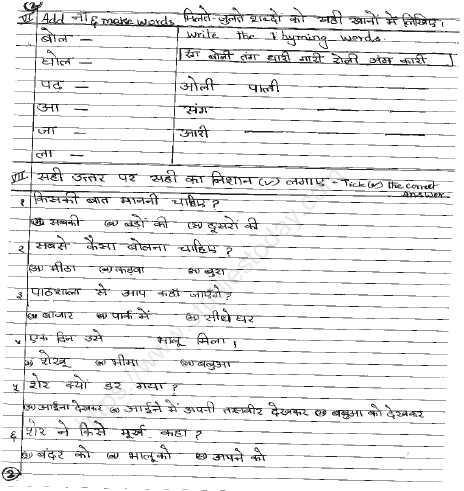 (2)
VI Add ना & make words
बोल —
घोल —
पढ़ —
आ —
जा —
ला —
मिलते-जुलते शब्दों को सही खानों में लिखिए।
Write the Rhyming words.
रंग बोली तंग धारी गारी रोली जंग कारी
ओली पाली
संग
आरी
VII सही उत्तर पर सही का निशान (✓) लगाए - Tick (✓) the correct answer
१ किसकी बात माननी चाहिए?
(अ) सबकी (ब) बड़ों की (स) दूसरों की
२ सबसे कैसा बोलना चाहिए?
(अ) मीठा (ब) कड़वा (स) बुरा
३ पाठशाला से आप कहाँ जाएँगे?
(अ) बाजार (ब) पार्क में (स) सीधे घर
४ एक दिन उसे ___ भालू मिला।
(अ) शेखू (ब) भीमा (स) बबुआ
५ शेर क्यों डर गया?
(अ) आईना देखकर (ब) आईने में अपनी तस्वीर देखकर (स) बबुआ को देखकर
६ शेर ने किसे मूर्ख कहा?
(अ) बंदर को (ब) भालू को (स) अपने को
(2)